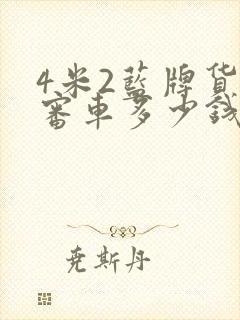 4米2蓝牌货
审车多少钱
尧斯丹